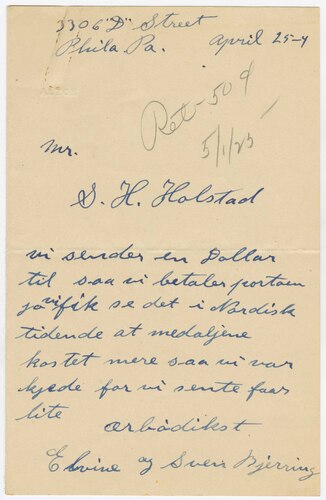 3306 "D" Street
Phila Pa. April 25-4
Ret-50¢
5/1/25
Mr.
S. H. Holstad
vi sender en Dollar
til saa vi betaler portoen
jo vi fik se det i Nordisk
tidende at medaljene
kostet mere saa vi var
kjede for vi sente faar
lite
ærbödikst
Elvine og Sven Bjerring